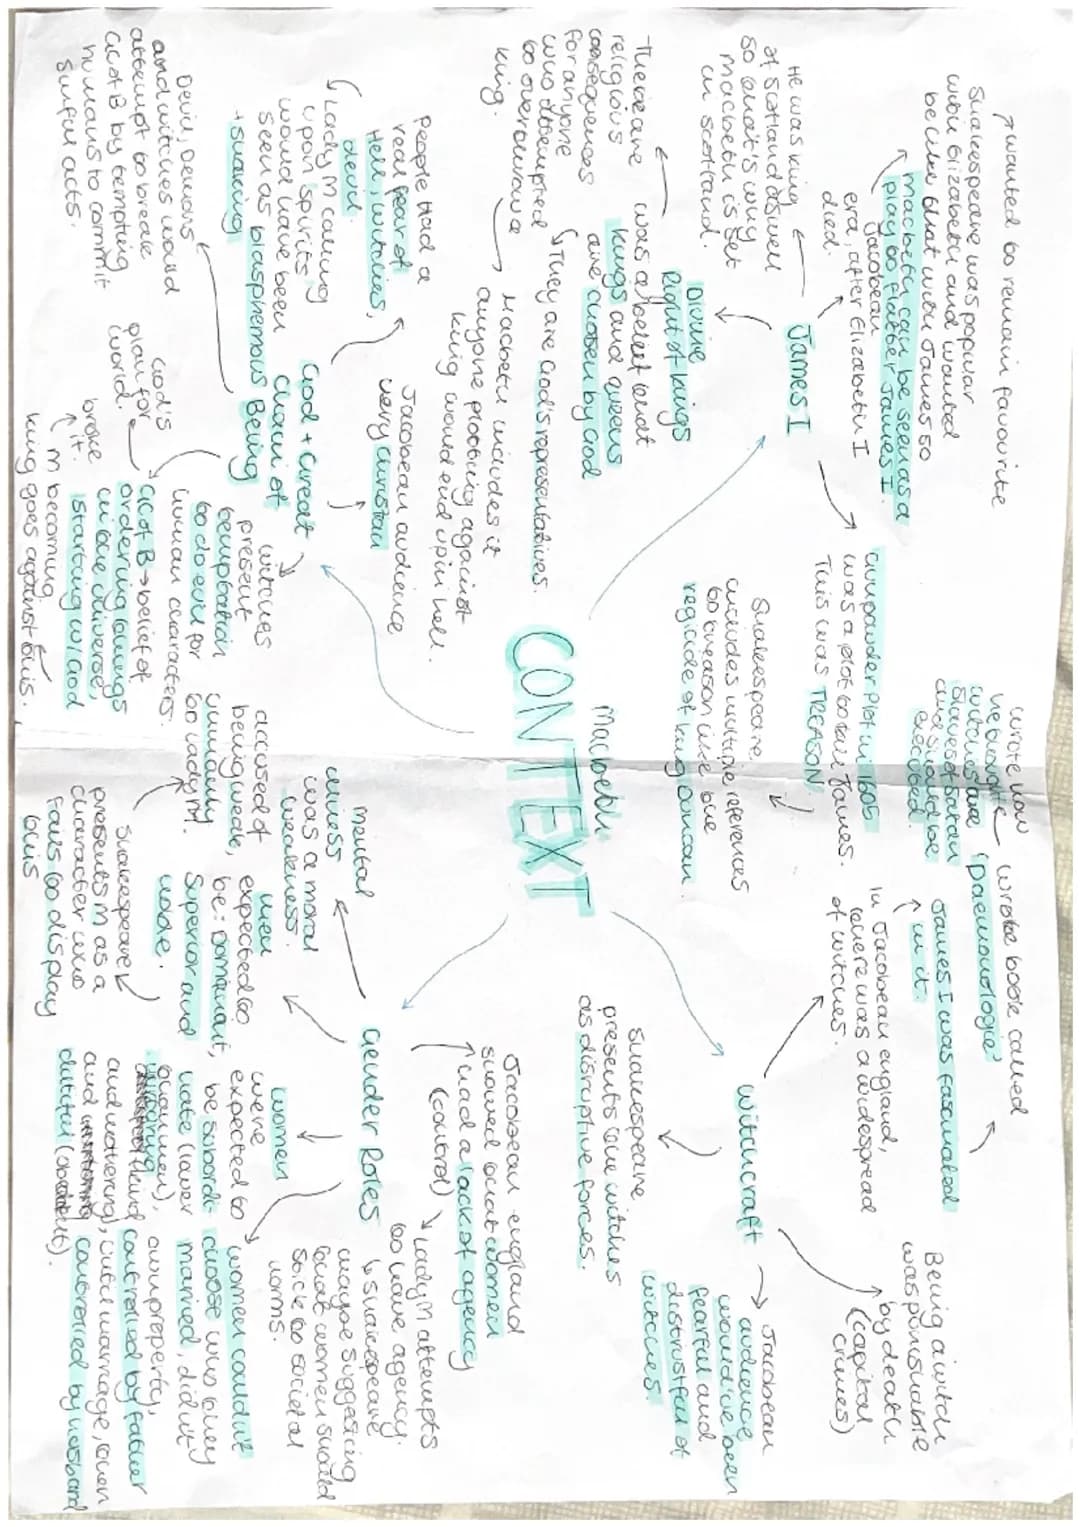 Macbeth
CONTEXT
James I
wanted to remain favourite
Shakespeare was popular
with Elizabeth and wanted
to be like that with James so
Macbeth can be seen as a
play to flatter James I.
Jacobean
era, after Elizabeth I
died.
He was king
of Scotland aswell
so that's why
Macbeth is set
in Scotland.
Divine
Right of kings
was a belief that
kings and queens
are chosen by God
They are God's representatives.
There are
religious
consequences
for anyone
who attempted
to overthrow a
king.
Macbeth includes it
anyone plotting against
king would end up in hell.
Gunpowder Plot in 1605
was a plot to kill James.
This was TREASON.
Shakespeare
includes multiple references
to treason like the
regicide of king Duncan.
Witchcraft
wrote book called
'Daemonologie'
wrote how
he thought
witches are
slaves of satan
and should be
executed.
James I was fascinated
in it.
In Jacobean england,
there was a widespread
of witches.
Being a witch
was punishable
by death
(capital
crimes)
Jacobean
audience
would've been
fearful and
distrustful of
witches.
Shakespeare
presents the witches
as disruptive forces.
God + Great
Chain of
Being
Jacobean audience
very christian
People had a
real fear of
Hell, witches,
devil.
Lady M calling
upon spirits
would have been
seen as blasphemous
+ shocking
Devil, Demons
and witches would
attempt to break
GC of B by tempting
humans to commit
sinful acts.
witches
present
temptation
to do evil for
human characters.
GC of B → belief of
ordering things
in the universe,
starting w/ God
God's
plan for
world.
M becoming
king goes against this.
broke
it.
Gender Roles
Jacobean england
showed that women
had a lack of agency
(control)
Lady M attempts
to have agency.
Shakespeare
maybe suggesting
that women should
stick to societal
norms.
mental
illness
was a moral
weakness.
men
expected to
be: Dominant,
Superior and
noble.
Shakespeare
presents M as a
character who
fails to display
this
accused of
being weak,
unmanly
to Lady M.
women
were
expected to
be subordi-
nate (lower
than men),
kind
and nothering,
and
dutiful
women couldn't
choose who they
married, didn't
own property,
controlled by father
until marriage, then
controlled by husband